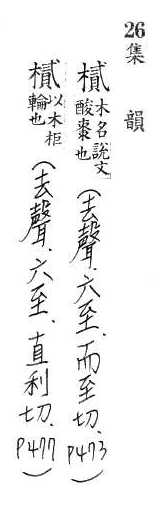 26集韻
樲木名說文酸棗也(去聲.六至.而至切.P473)
樲以木柜輪也(去聲.六至.直利切.P477)